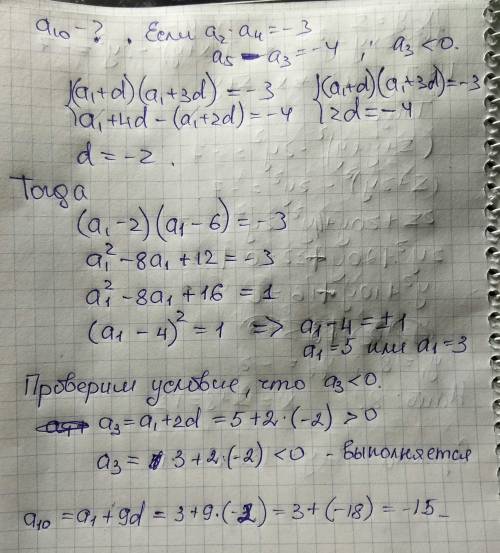 a₁₀ - ? . Если a₂ · a₄ = -3
a₅ - a₃ = -4 ; a₃ < 0.
{(a₁+d)(a₁+3d) = -3 {(a₁+d)(a₁+3d) = -3
{a₁+4d-(a₁+2d) = -4 {2d = -4
d = -2 .
Тогда
(a₁-2)(a₁-6) = -3
a₁² - 8a₁ + 12 = -3
a₁² - 8a₁ + 16 = 1
(a₁ - 4)² = 1 => a₁-4 = ±1
a₁=5 или a₁=3
Проверим условие, что a₃<0.
a₃ = a₁+2d = 5+2·(-2) > 0
a₃ = 3+2·(-2) < 0 - выполняется
a₁₀ = a₁+9d = 3+9·(-2) = 3+(-18) = -15